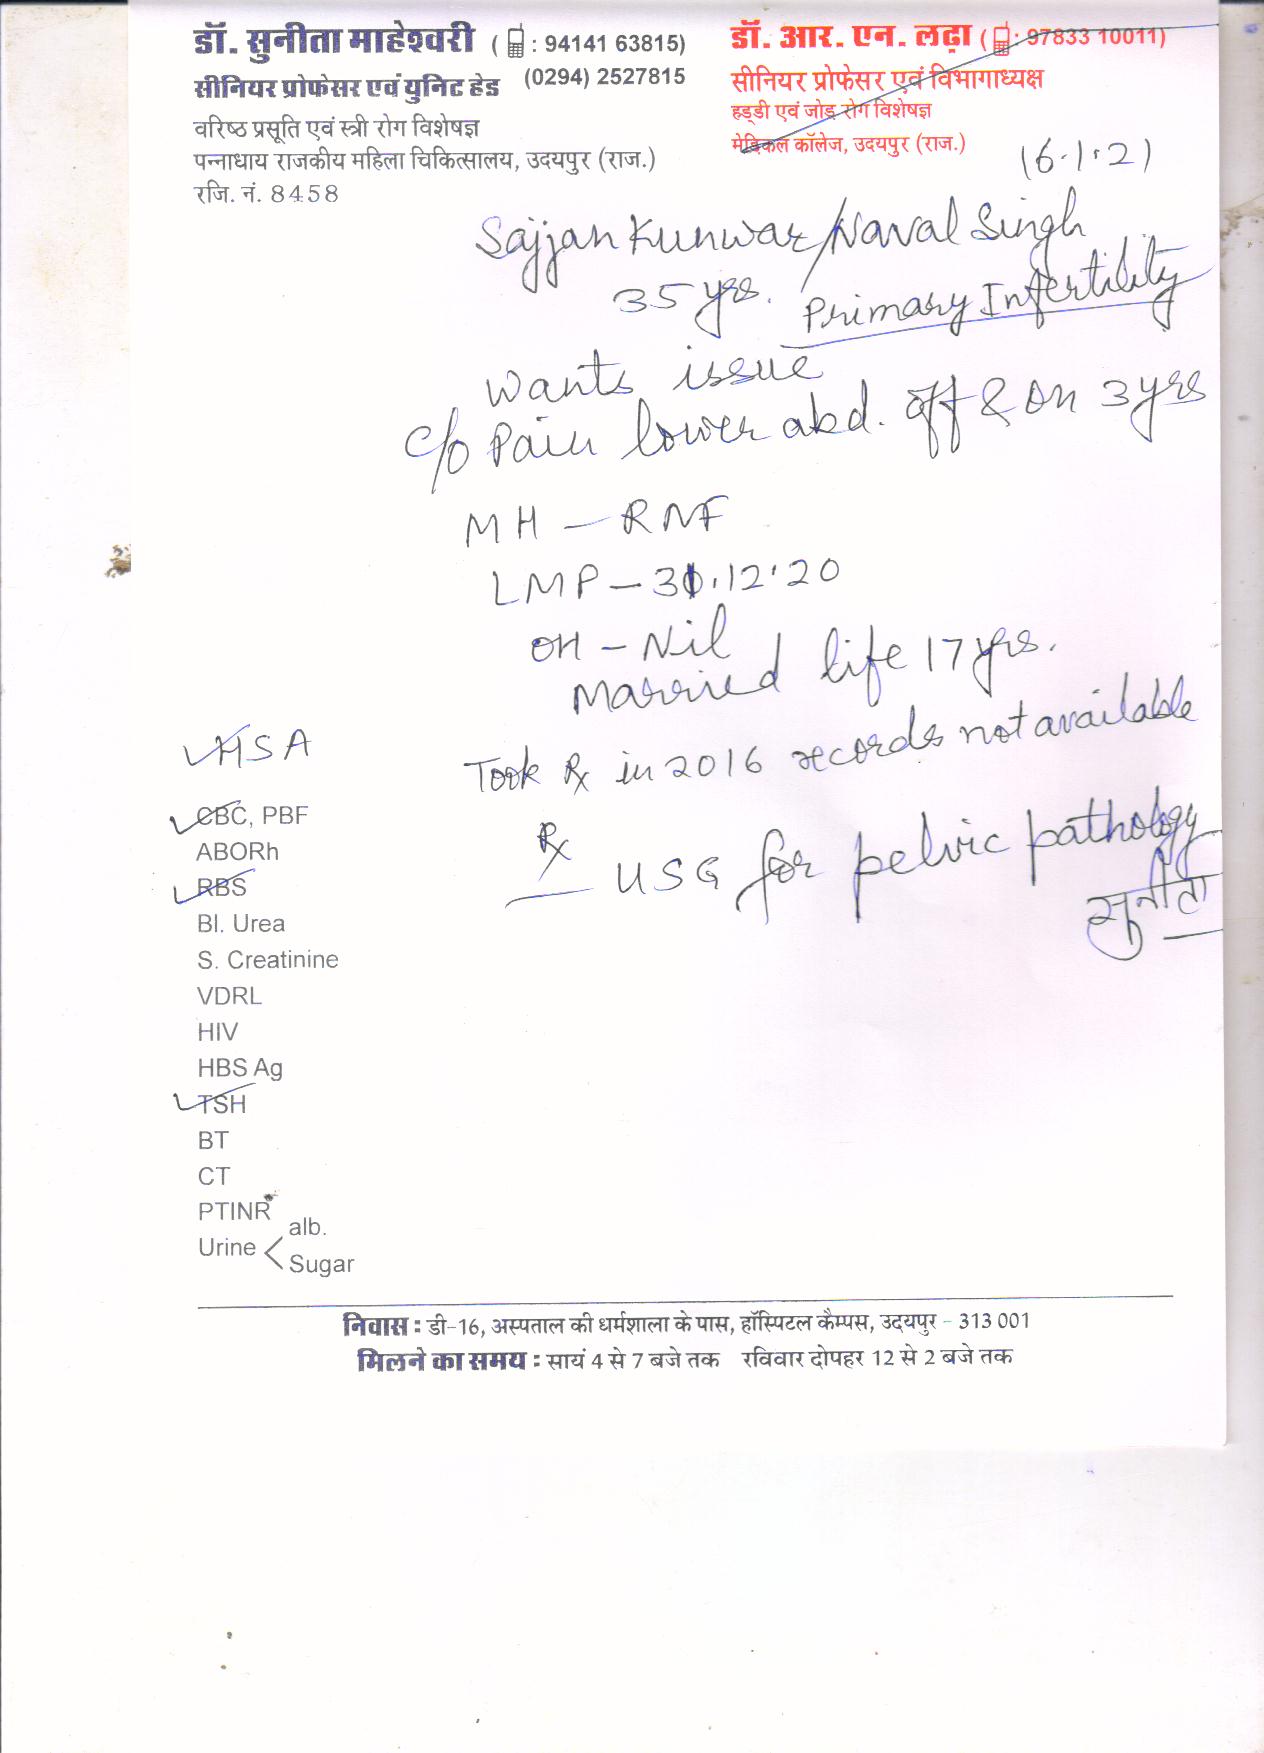 डॉ. सुनीता माहेश्वरी ( : 94141 63815)
सीनियर प्रोफेसर एवं युनिट हेड (0294) 2527815
वरिष्ठ प्रसूति एवं स्त्री रोग विशेषज्ञ
पन्नाधाय राजकीय महिला चिकित्सालय, उदयपुर (राज.)
रजि. नं. 8458
डॉ. आर. एन. लढ़ा ( : 97833 10011)
सीनियर प्रोफेसर एवं विभागाध्यक्ष
हड्डी एवं जोड़ रोग विशेषज्ञ
मेडिकल कॉलेज, उदयपुर (राज.)
16.1.21
Sajjan Kunwar/Naval Singh
35 yrs. Primary Infertility
Wants issue
c/o Pain lower abd. off & on 3 yrs
MH - RNF
LMP - 31.12.20
OH - Nil
Married life 17 yrs.
Took Rx in 2016 records not available
Rx
USG for pelvic pathology
सुनीता
HSA
CBC, PBF
ABORh
RBS
Bl. Urea
S. Creatinine
VDRL
HIV
HBS Ag
TSH
BT
CT
PTINR
Urine < alb.
Sugar
निवास : डी-16, अस्पताल की धर्मशाला के पास, हॉस्पिटल कैम्पस, उदयपुर - 313 001
मिलने का समय : सायं 4 से 7 बजे तक रविवार दोपहर 12 से 2 बजे तक